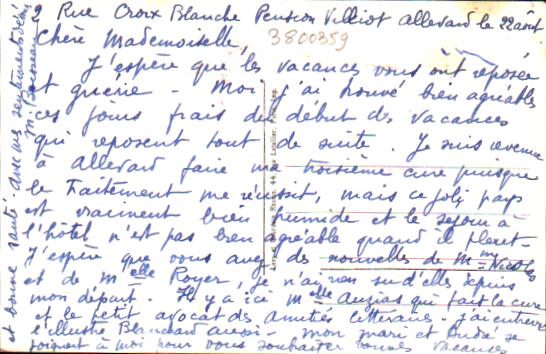 2 Rue Croix Blanche Pension Villiot Allevard le 22 août
Chère Mademoiselle,
3800359
J'espère que les vacances vous ont reposée
et guérie - Moi j'ai trouvé bien agréables
ces jours frais du début des vacances
qui reposent tout de suite. Je suis revenue
à Allevard faire ma troisième cure puisque
le traitement me réussit, mais ce joli pays
est vraiment bien humide et le séjour à
l'hôtel n'est pas bien agréable quand il pleut -
J'espère que vous avez des nouvelles de Mme
et de Melle Royer, je n'ai rien su d'elles depuis
mon départ. Il y a ici Melle Auzias qui fait la cure
et le petit avocat des amitiés littéraires - j'ai entrevu
l'illustre Blanchard aussi - mon mari et André se
joignent à moi pour vous souhaiter bonnes vacances
et bonne santé - avec mes sentiments